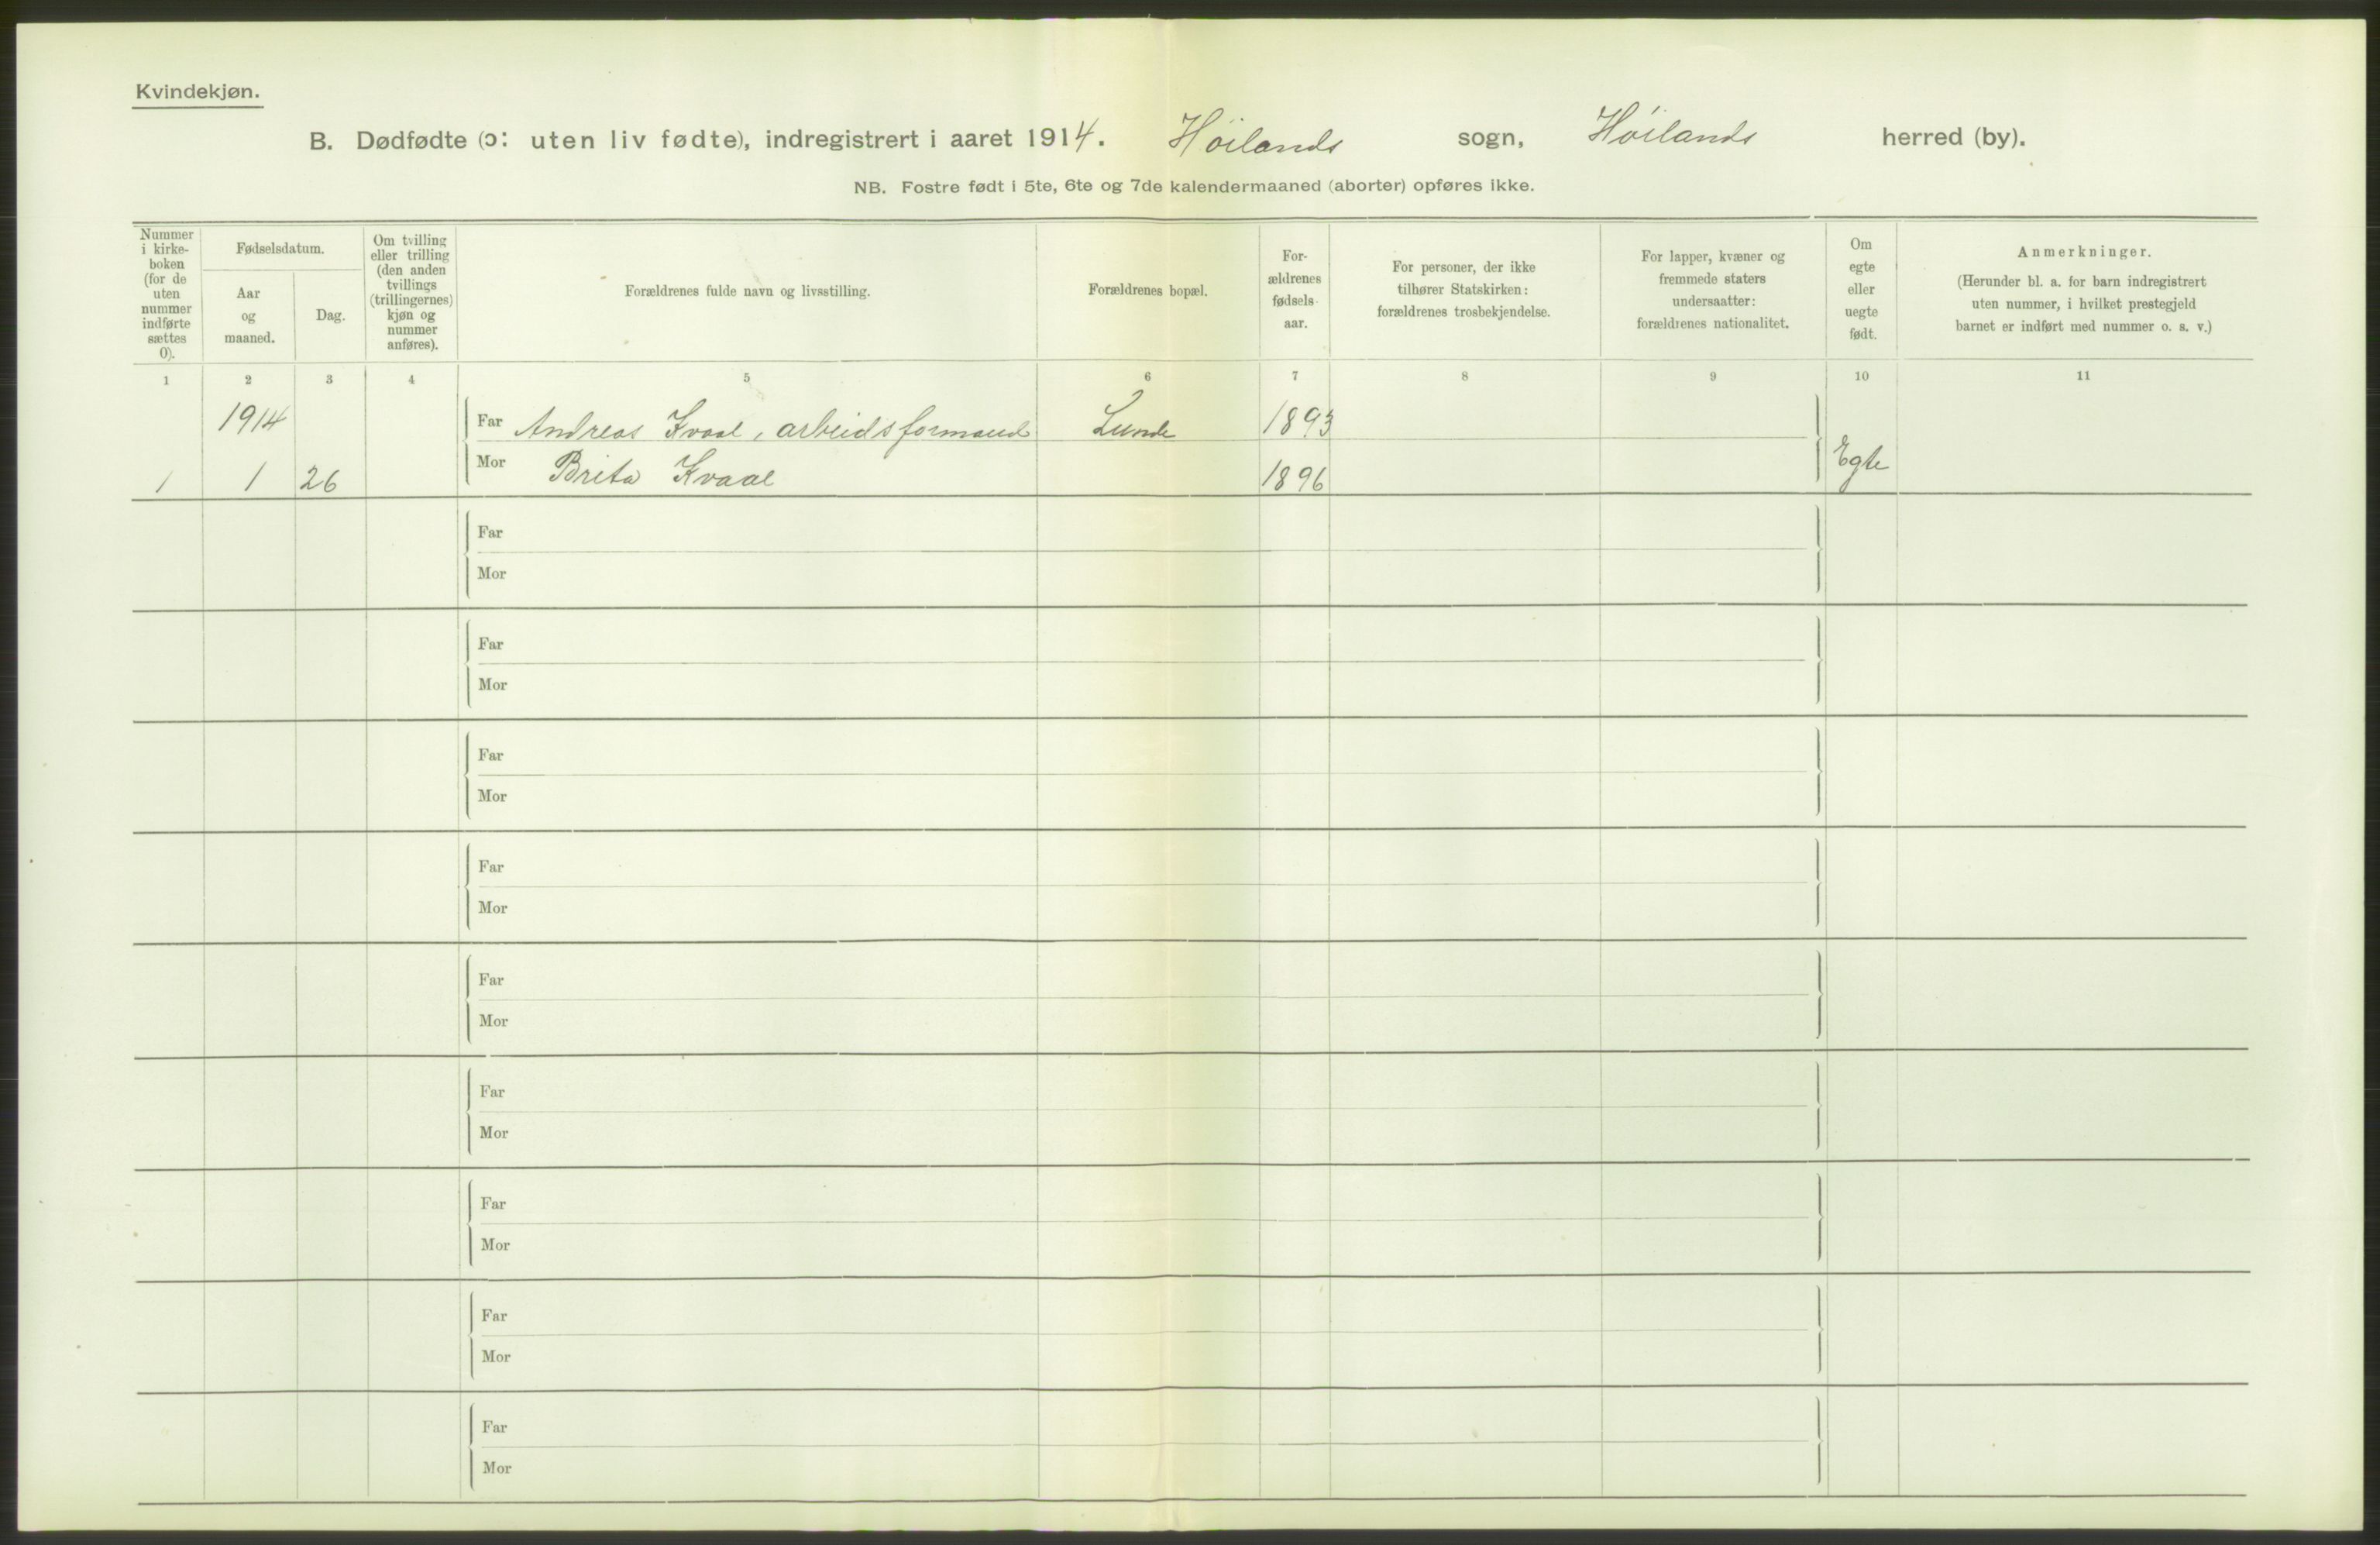 Kvindekjøn.
B. Dødfødte (ɔ: uten liv fødte), indregistrert i aaret 1914. Höilands sogn, Höilands herred (by).
NB. Fostre født i 5te, 6te og 7de kalendermaaned (aborter) opføres ikke.
Nummer
i kirke-
boken
(for de
uten
nummer
indførte
sættes
0).
Fødselsdatum.
Aar
og
maaned.
Dag.
Om tvilling
eller trilling
(den anden
tvillings
(trillingernes)
kjøn og
nummer
anføres).
Forældrenes fulde navn og livsstilling.
Forældrenes bopæl.
For-
ældrenes
fødsels-
aar.
For personer, der ikke
tilhører Statskirken:
forældrenes trosbekjendelse.
For lapper, kvæner og
fremmede staters
undersaatter:
forældrenes nationalitet.
Om
egte
eller
uegte
født.
Anmerkninger.
(Herunder bl. a. for barn indregistrert
uten nummer, i hvilket prestegjeld
barnet er indført med nummer o. s. v.)
1 2 3 4 5 6 7 8 9 10 11
1914 Far Andreas Kvaal, arbeidsformand Lunde 1893
1 1 26 Mor Brita Kvaal 1896 Egte
Far
Mor
Far
Mor
Far
Mor
Far
Mor
Far
Mor
Far
Mor
Far
Mor
Far
Mor
Far
Mor